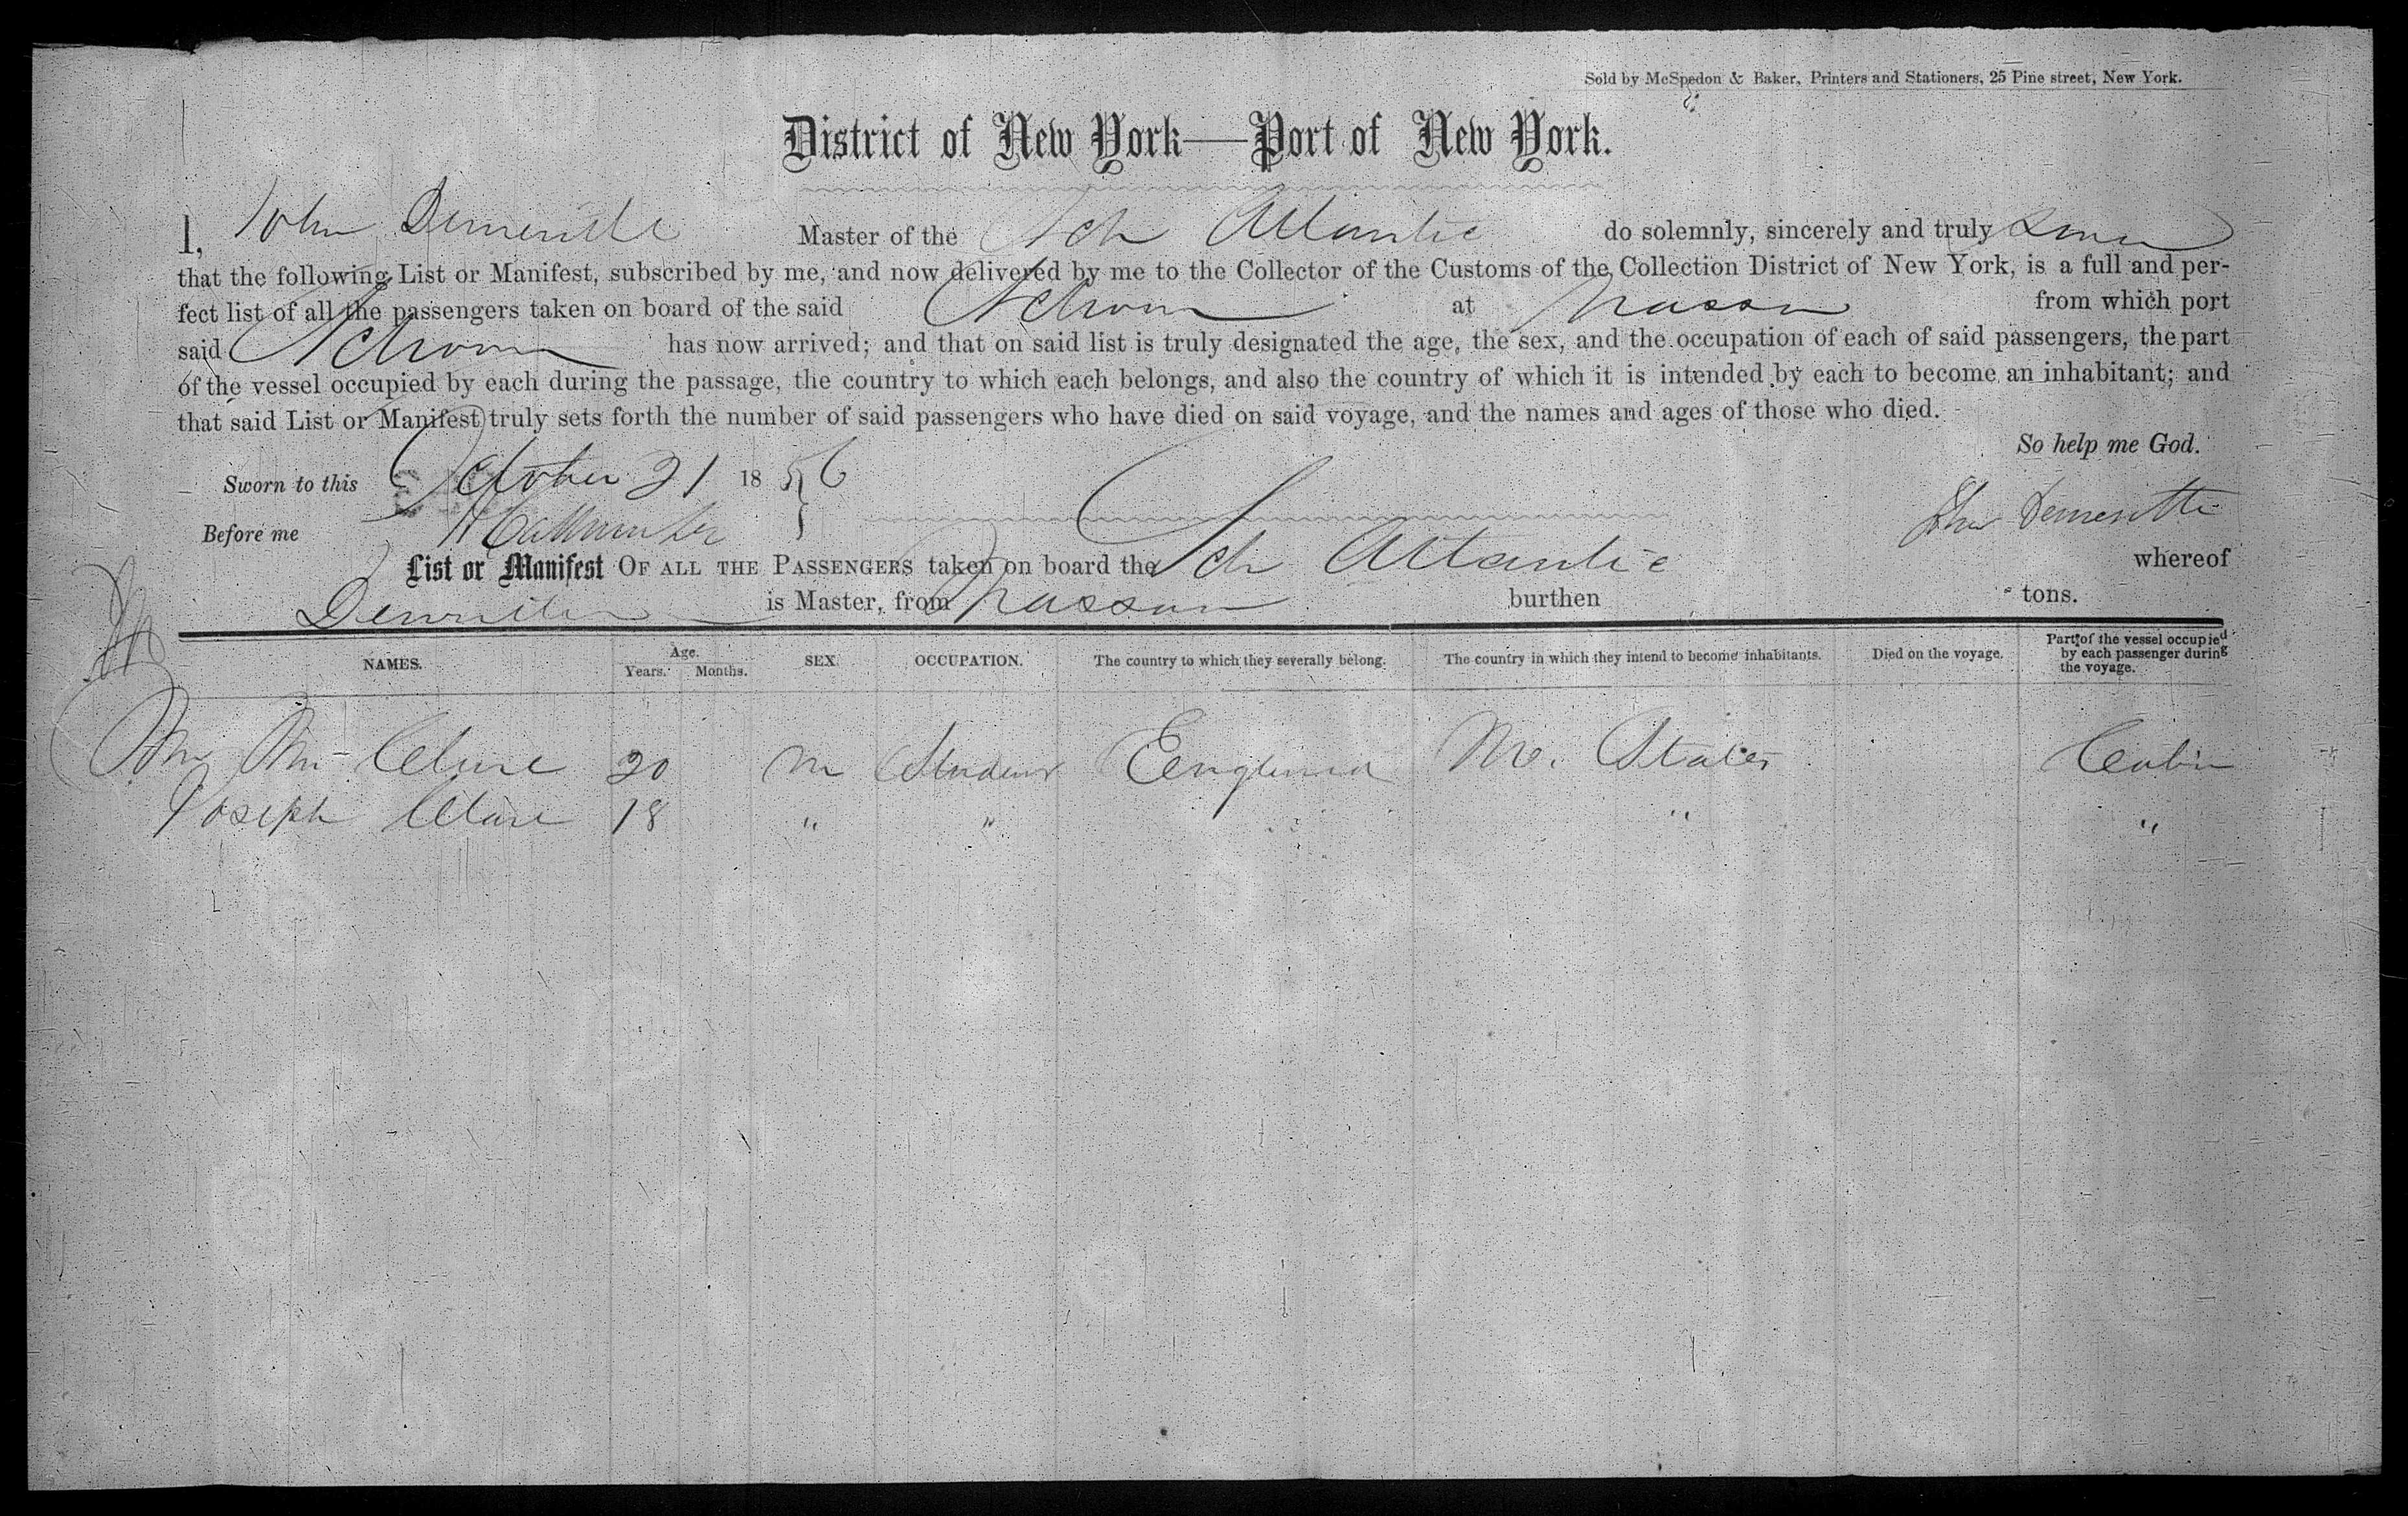 Sold by McSpedon & Baker, Printers and Stationers, 25 Pine street, New York.
District of New York—Port of New York.
I, John Demeritte Master of the Sch Atlantic do solemnly, sincerely and truly swear
that the following List or Manifest, subscribed by me, and now delivered by me to the Collector of the Customs of the Collection District of New York, is a full and per-
fect list of all the passengers taken on board of the said Schoon at Nassau from which port
said Schoon has now arrived; and that on said list is truly designated the age, the sex, and the occupation of each of said passengers, the part
of the vessel occupied by each during the passage, the country to which each belongs, and also the country of which it is intended by each to become an inhabitant; and
that said List or Manifest truly sets forth the number of said passengers who have died on said voyage, and the names and ages of those who died.
So help me God.
Sworn to this October 21 1856
Before me
John Demeritte
List or Manifest OF ALL THE PASSENGERS taken on board the Sch Atlantic whereof
is Master, from Nassau burthen tons.
NAMES. Age. Years. Months. SEX. OCCUPATION. The country to which they severally belong. The country in which they intend to become inhabitants. Died on the voyage. Part of the vessel occupied by each passenger during the voyage.
Clare 20 M Student England States Cabin
Joseph Clare 18 " " " " "